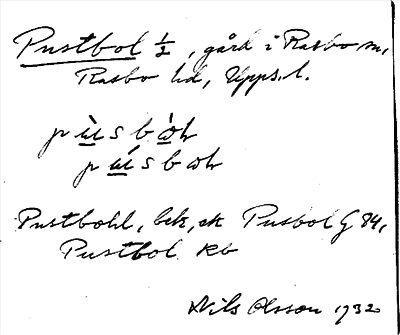 Pustbol ½, gård i Rasbo sn,
Rasbo hd, Upps. l.
Pustbohl, bek, ek Pusbol G 84,
Pustbol Kb
Nils Olsson 1932